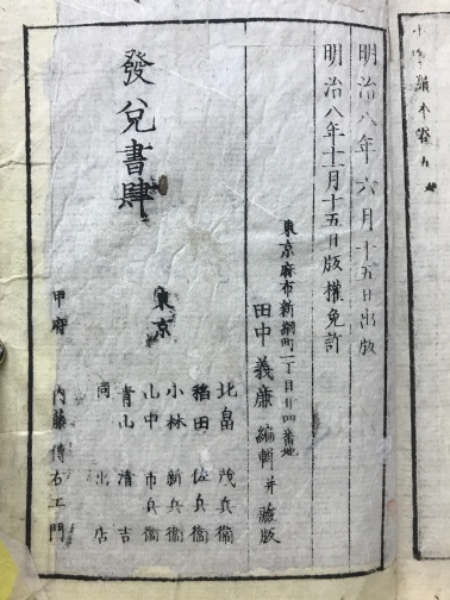 明治八年六月十五日出版
明治八年十一月十五日版權免許
東京麻布新網町一丁目廿四番地
田中義廉 編輯并藏版
發兌書肆
東京
北畠茂兵衞
稻田佐兵衞
小林新兵衞
山中市兵衞
青山清吉
同 出店
甲府 内藤傳右エ門